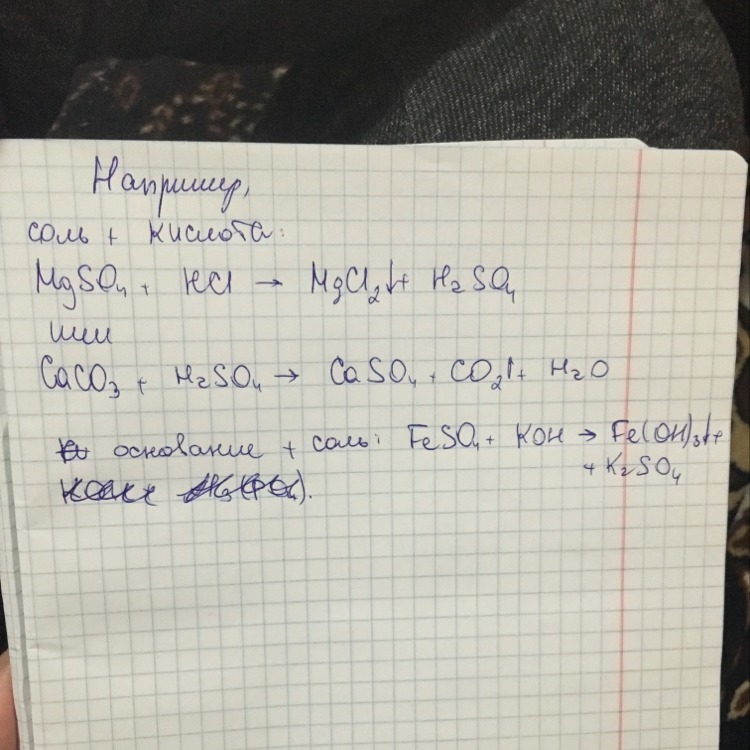 Например,
соль + кислота:
MgSO₄ + HCl → MgCl₂↓ + H₂SO₄
или
CaCO₃ + H₂SO₄ → CaSO₄ + CO₂↑ + H₂O
основание + соль: FeSO₄ + KOH → Fe(OH)₃↓ +
+ K₂SO₄